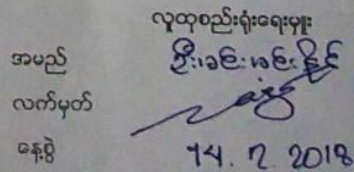 လူထုစည်းရုံးရေးမှူး
အမည် ဦးခင်မောင်နိုင်
လက်မှတ်
နေ့စွဲ 14. 7. 2018